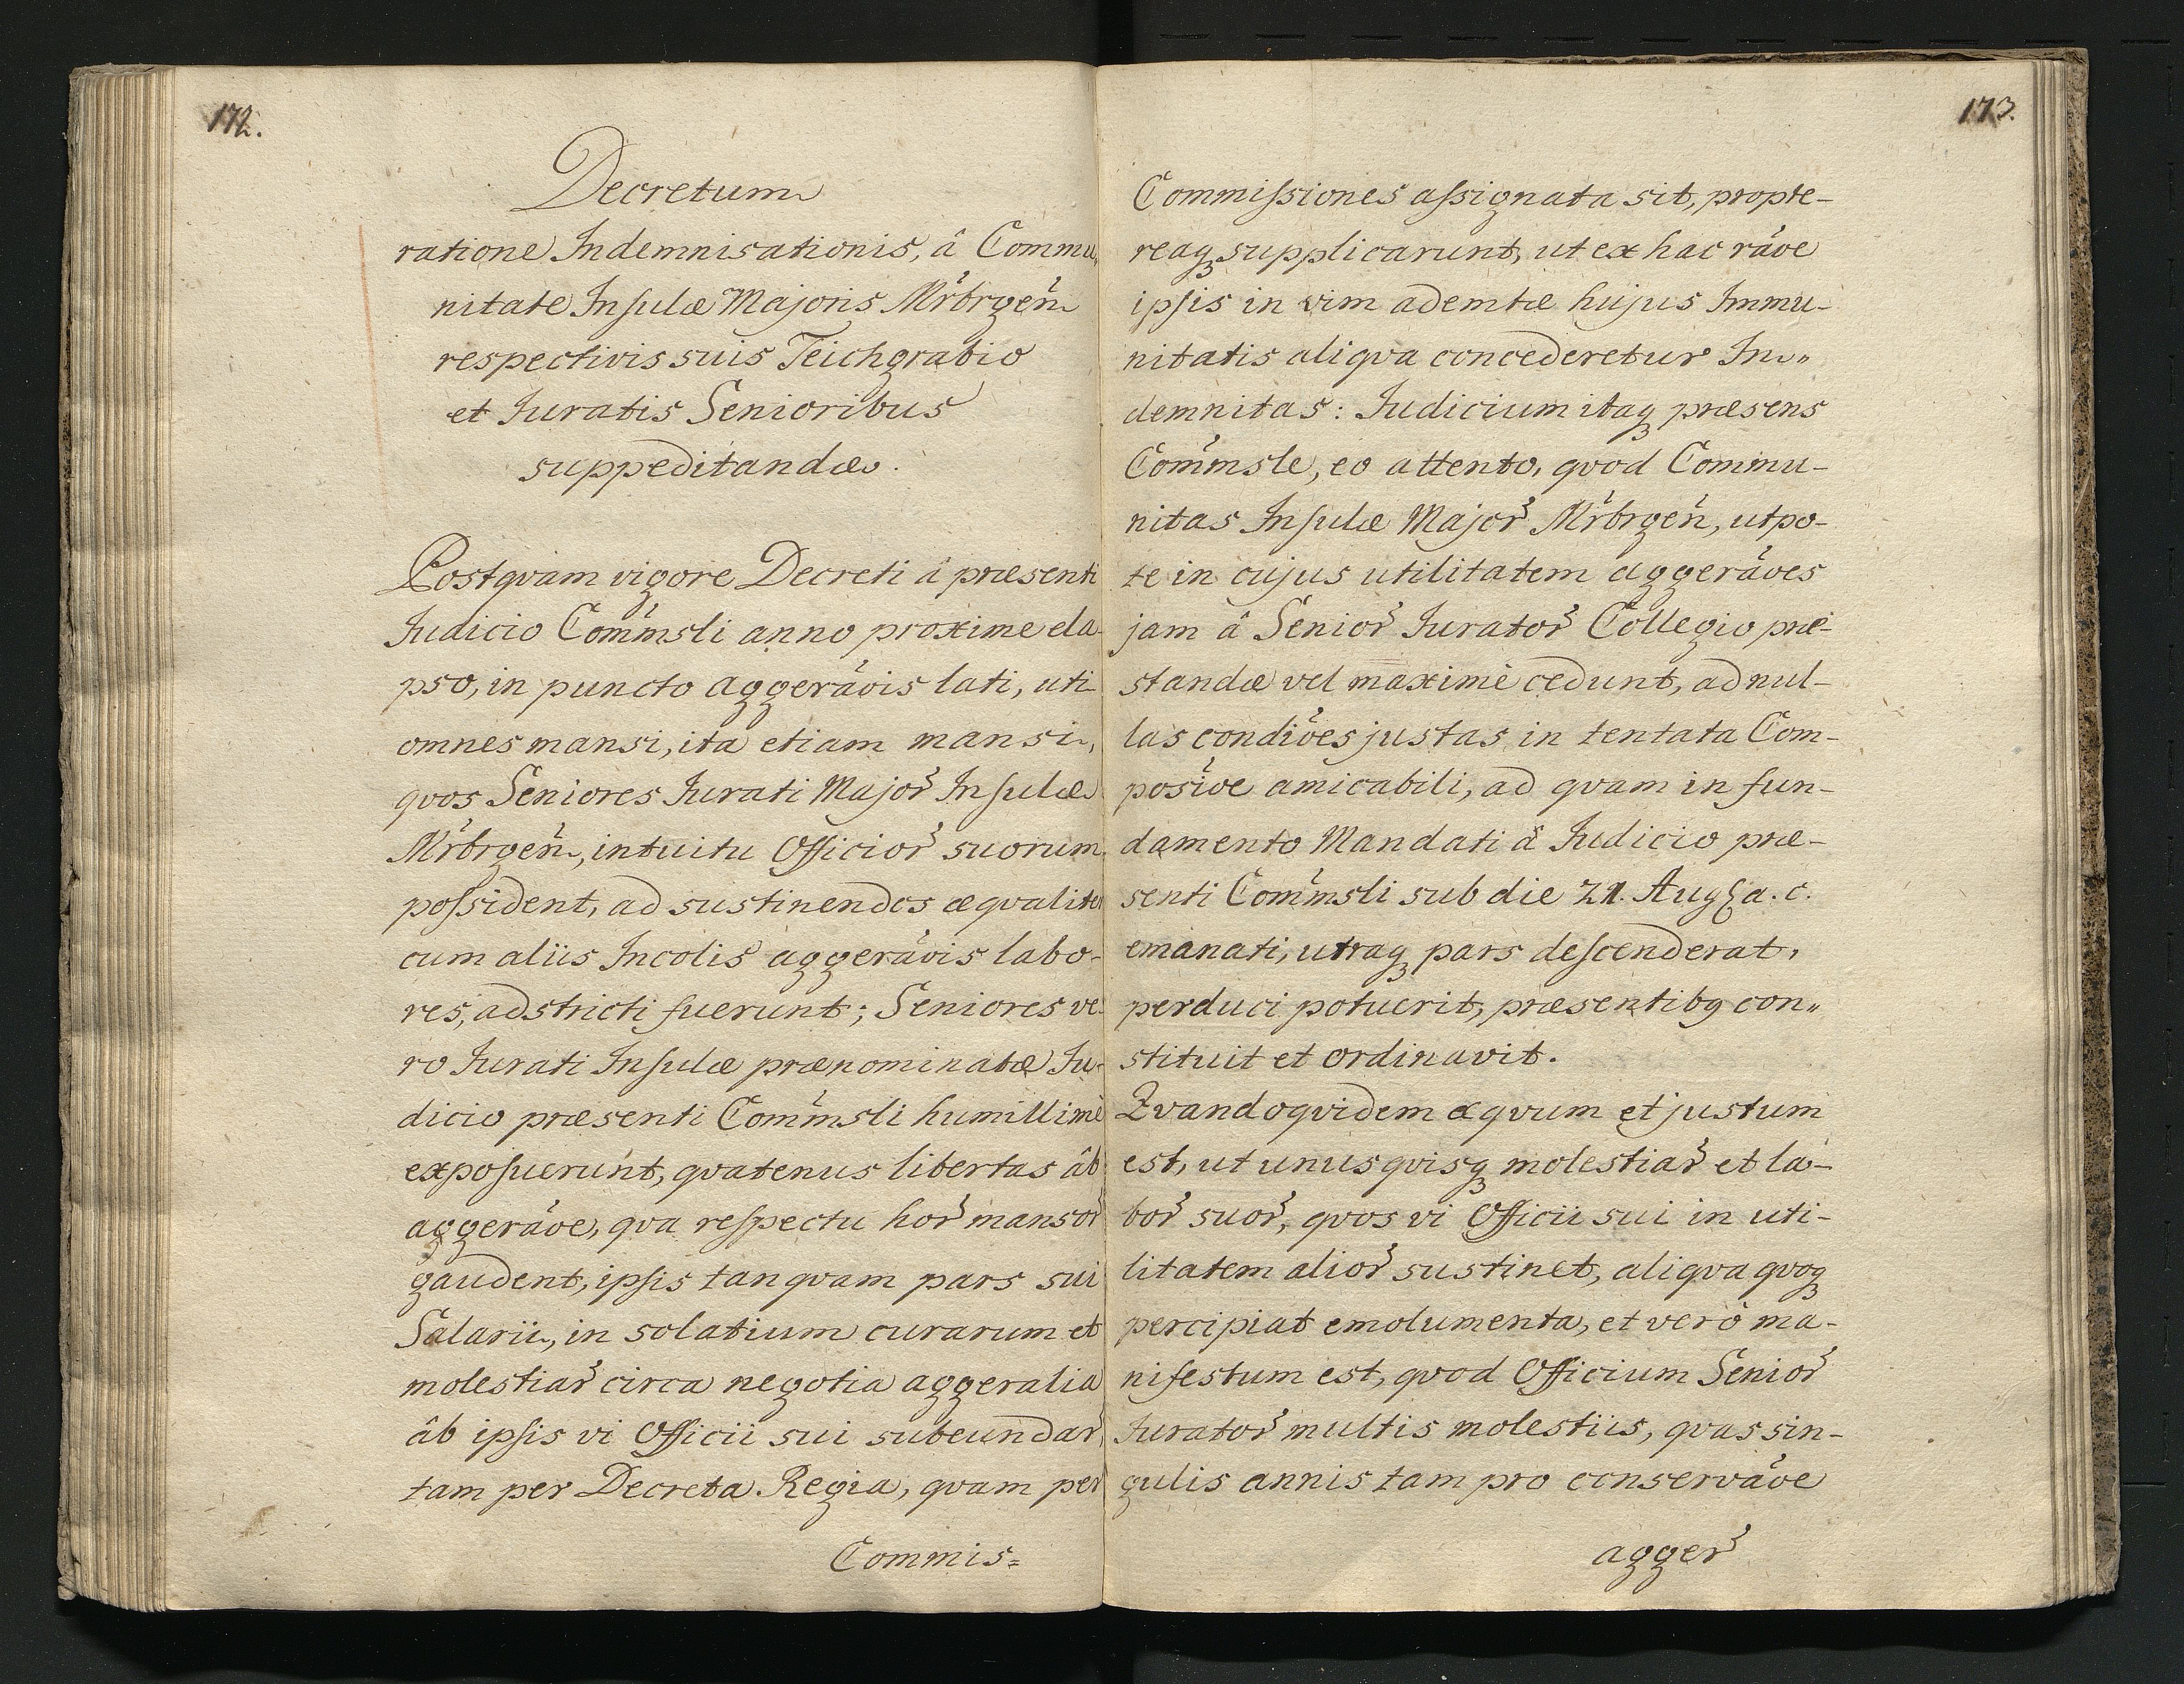 172.
Decretum
ratione Indemnisationis, â Commu„
nitate Insulæ Majoris Mr̃brgen̄
respectivis suis Teichgrabio
et Juratis Senioribus
suppeditandæ.
Postqvam vigore Decreti â præsenti
Judicio Com̃msli anno proxime ela-
pso, in puncto aggerãois lati, uti
omnes mansi, ita etiam mansi,
qvos Seniores Jurati Major̃ Insulæ
Mr̃brgen̄, intuitu Officior̃ suorum
poſsident, ad sustinendos æqvaliter
cum aliis Incolis aggerãois labo-
res, adstricti fuerunt; Seniores ve-
ro Jurati Insulæ prænominatæ Ju-
dicio præsenti Com̃msli humillimè
exposuerunt, qvatenus libertas âb
aggerãoe, qva respectu hor̃ mansor̃
gaudent, ipsis tanqvam pars sui
Salarii, in solatium curarum et
molestiar̃ circa negotia aggeralia
âb ipsis vi Officii sui subeundar̃,
tam per Decreta Regia, qvam per
Commis=
173.
Commiſsiones aſsignata sit, propte-
reaqꝫ supplicarunt, ut ex hac rãoe
ipsis in vim ademtæ hujus Immu-
nitatis aliqva concederetur In„
demnitas: Judicium itaqꝫ præsens
Com̃msle, eo attento, qvod Commu-
nitas Insulæ Major̃ Mr̃brgen̄, utpo-
te in cujus utilitatem aggerãoes
jam â Senior̃ Jurator̃ Collegio præ-
standæ vel maximè cedunt, ad nul-
las condiões justas in tentata Com-
posiõe amicabili, ad qvam in fun-
damento Mandati â Judicio præ-
senti Com̃msli sub die 21. Aug. a. c.
emanati, utraqꝫ pars descenderat,
perduci potuerit, præsentibꝫ con„
stituit et ordinavit.
Qvandoqvidem æqvum et justum
est, ut unusqvisqꝫ molestiar̃ et la-
bor̃ suor̃, qvos vi Officii sui in uti-
litatem alior̃ sustinet, aliqva qvoqꝫ
percipiat emolumenta, et verò ma-
nifestum est, qvod Officium Senior̃
Jurator̃ multis molestiis, qvas sin-
gulis annis tam pro conservãoe
agger̃